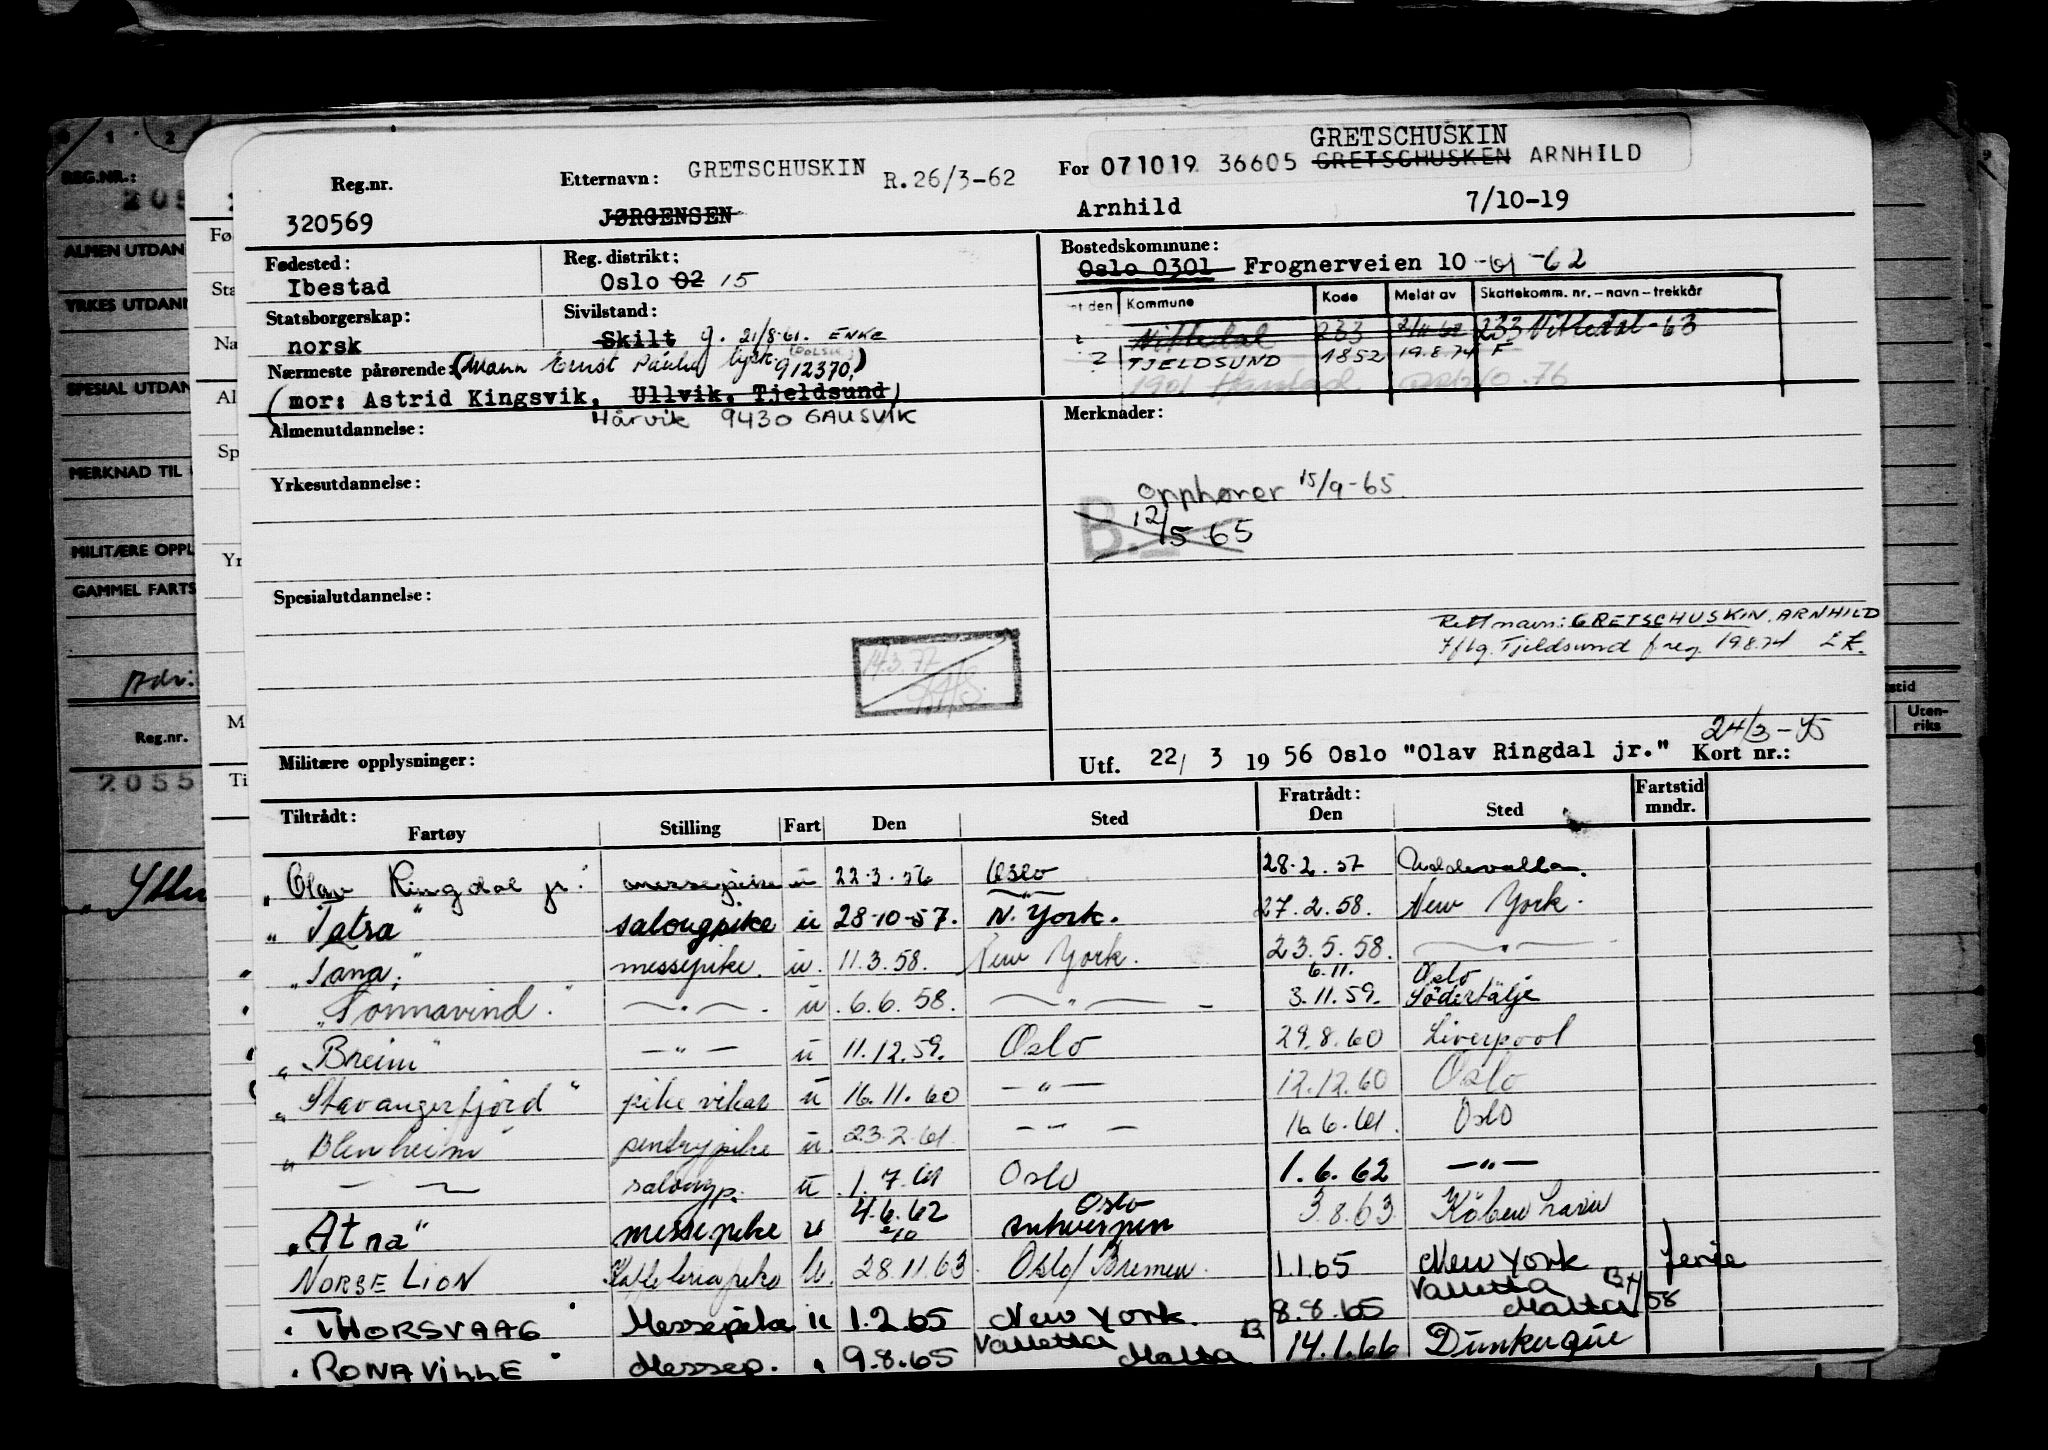 GRETSCHUSKIN
Reg.nr. Etternavn: GRETSCHUSKIN R.26/3-62 For 071019 36605 GRETSCHUSKEN ARNHILD
320569 JØRGENSEN Arnhild 7/10-19
Fødested: Reg. distrikt: Bostedskommune:
Ibestad Oslo 02 15 Oslo 0301 Frognerveien 10 -61 -62
Statsborgerskap: Sivilstand: nt den Kommune Kode Meldt av Skattekomm. nr. – navn – trekkår
norsk Skilt g. 21/8-61. ENKE Nittedal 233 233 Nittedal-63
2 TJELDSUND 1852 19.8.74 F
Nærmeste pårørende: (Mann Ernst 912370.)
1901 Harstad 76
(mor: Astrid Kingsvik, Ullvik, Tjeldsund)
Hårvik 9430 GAUSVIK
Almenutdannelse: Merknader:
Yrkesutdannelse:
Opphører 15/9-65
B. 12/5 65
Spesialutdannelse:
Rett navn: GRETSCHUSKIN, ARNHILD
Tjeldsund f.reg 19.8.74
14.3.77
24/3-75
Militære opplysninger: Utf. 22/ 3 19 56 Oslo "Olav Ringdal jr." Kort nr.:
Tiltrådt: Fratrådt: Fartstid
Fartøy Stilling Fart Den Sted Den Sted mndr.
"Olav Ringdal jr." messepike u 22.3.56 Oslo 28.2.57 Uddevalla.
"Tatra" salongpike u 28-10-57. N. York. 27.2.58. New York.
"Tana." messepike. u. 11.3.58. New York. 23.5.58. — " —
6.11. Oslo
"Sonnavind." — " — u 6.6.58. — " — 3.11.59. Södertälje
"Breim" — " — u 11.12.59. Oslo 29.8.60 Liverpool
"Stavangerfjord" pike vikar u 16.11.60 — " — 12.12.60 Oslo
"Blenheim" pentrypike u. 23.2.61. — — — 16.6.61. Oslo
— " — salongp. u 1.7.61 Oslo 1.6.62 — " —
"Atna" messepike u 4.6.62 2/10 Oslo Antwerpen 3.8.63. Köbenhavn
NORSE LION Kaffeteriapike u. 28.11.63. Oslo/Bremen. 1.1.65 New York ferie
"THORSVAAG" Messepike u 1.2.65 New York. 8.8.65 Valletta Malta 58
"RONAVILLE" Messep. " 9.8.65 Valletta Malta B 14.1.66 Dunkerque
REG.NR.:
205
ALMEN UTDAN
YRKES UTDANN
SPESIAL UTDAN
MERKNAD TIL
MILITÆRE OPPL
GAMMEL FARTS
Adr:
Reg.nr.
2055
Fø
Sta
Na
Al
Sp
Yr
M
Ti
stid
Uten-
riks